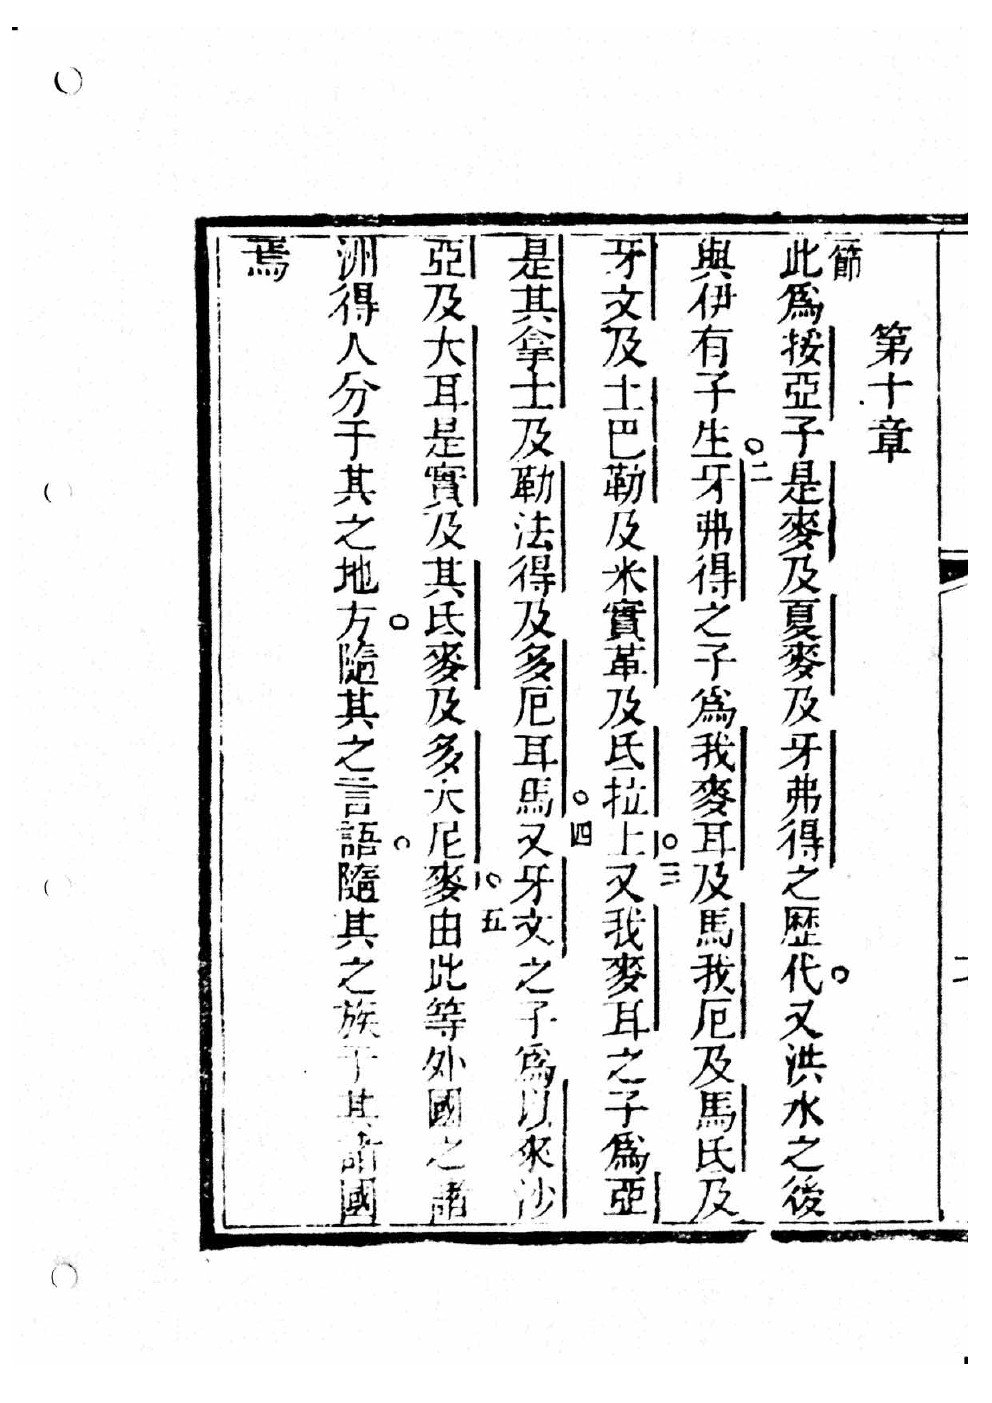 第十章
節
此爲按亞子是麥及夏麥及牙弗得之歷代。又洪水之後
與伊有子生。二牙弗得之子爲我麥耳及馬我厄及馬氏及
牙文及土巴勒及米實革及氏拉士。三又我麥耳之子爲亞
是其拿士及勒法得及多厄耳馬。四又牙文之子爲以來沙
亞及大耳是實及其氏麥及多大尼麥。五由此等外國之諸
洲得人分于其之地方。隨其之言語。隨其之族于其諸國
焉